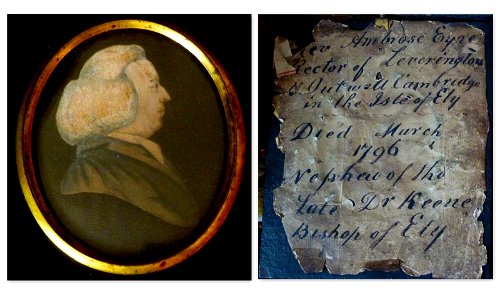 Rev Ambrose Eyre
Rector of Leverington
& Outwell Cambridge
in the Isle of Ely
Died March
1796
Nephew of the
Late Dr Keene
Bishop of Ely